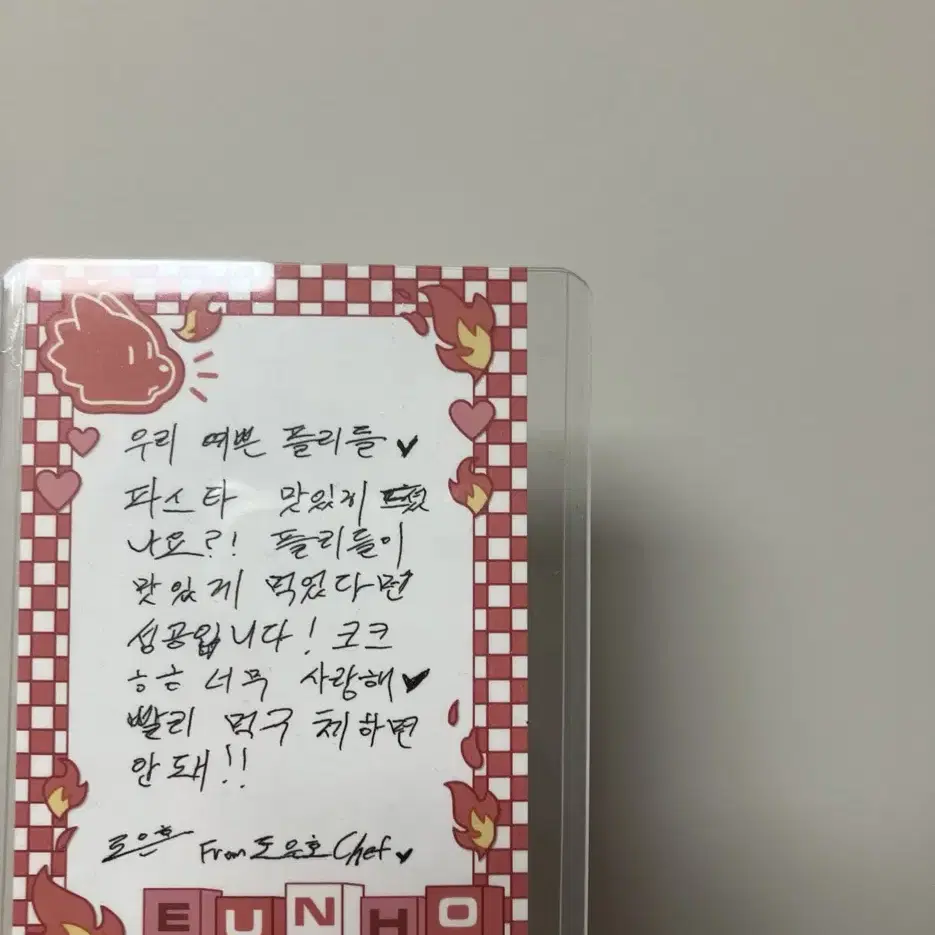 우리 예쁜 플리들 ♥
파스타 맛있게 드셨
나요?! 플리들이
맛있게 먹었다면
성공입니다! 코크
ㅎㅎ 너무 사랑해♥
빨리 먹구 체하면
안돼!!
도은호 From 도은호 Chef♥
EUNHO